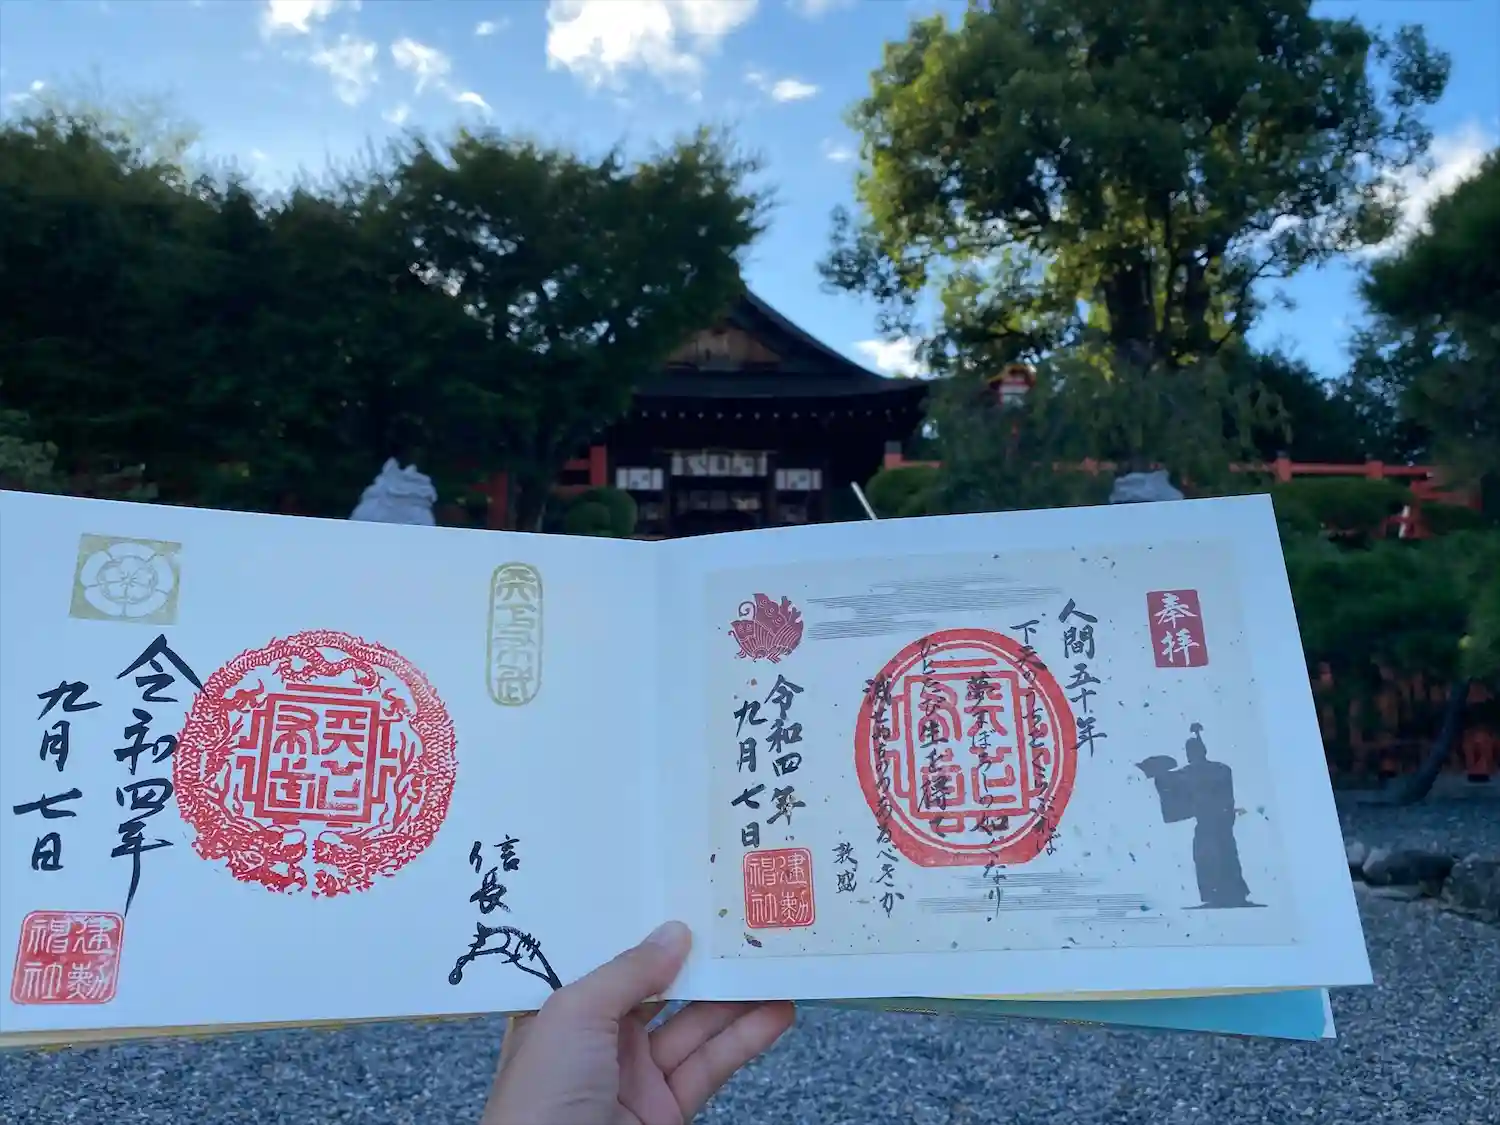 奉拝
人間五十年
下天のうちをくらぶれば
夢まぼろしの如くなり
ひとたび生を得て
滅せぬもののあるべきか
敦盛
令和四年
九月七日
建勲神社
天下布武
天下布武
信長
令和四年
九月七日
建勲神社